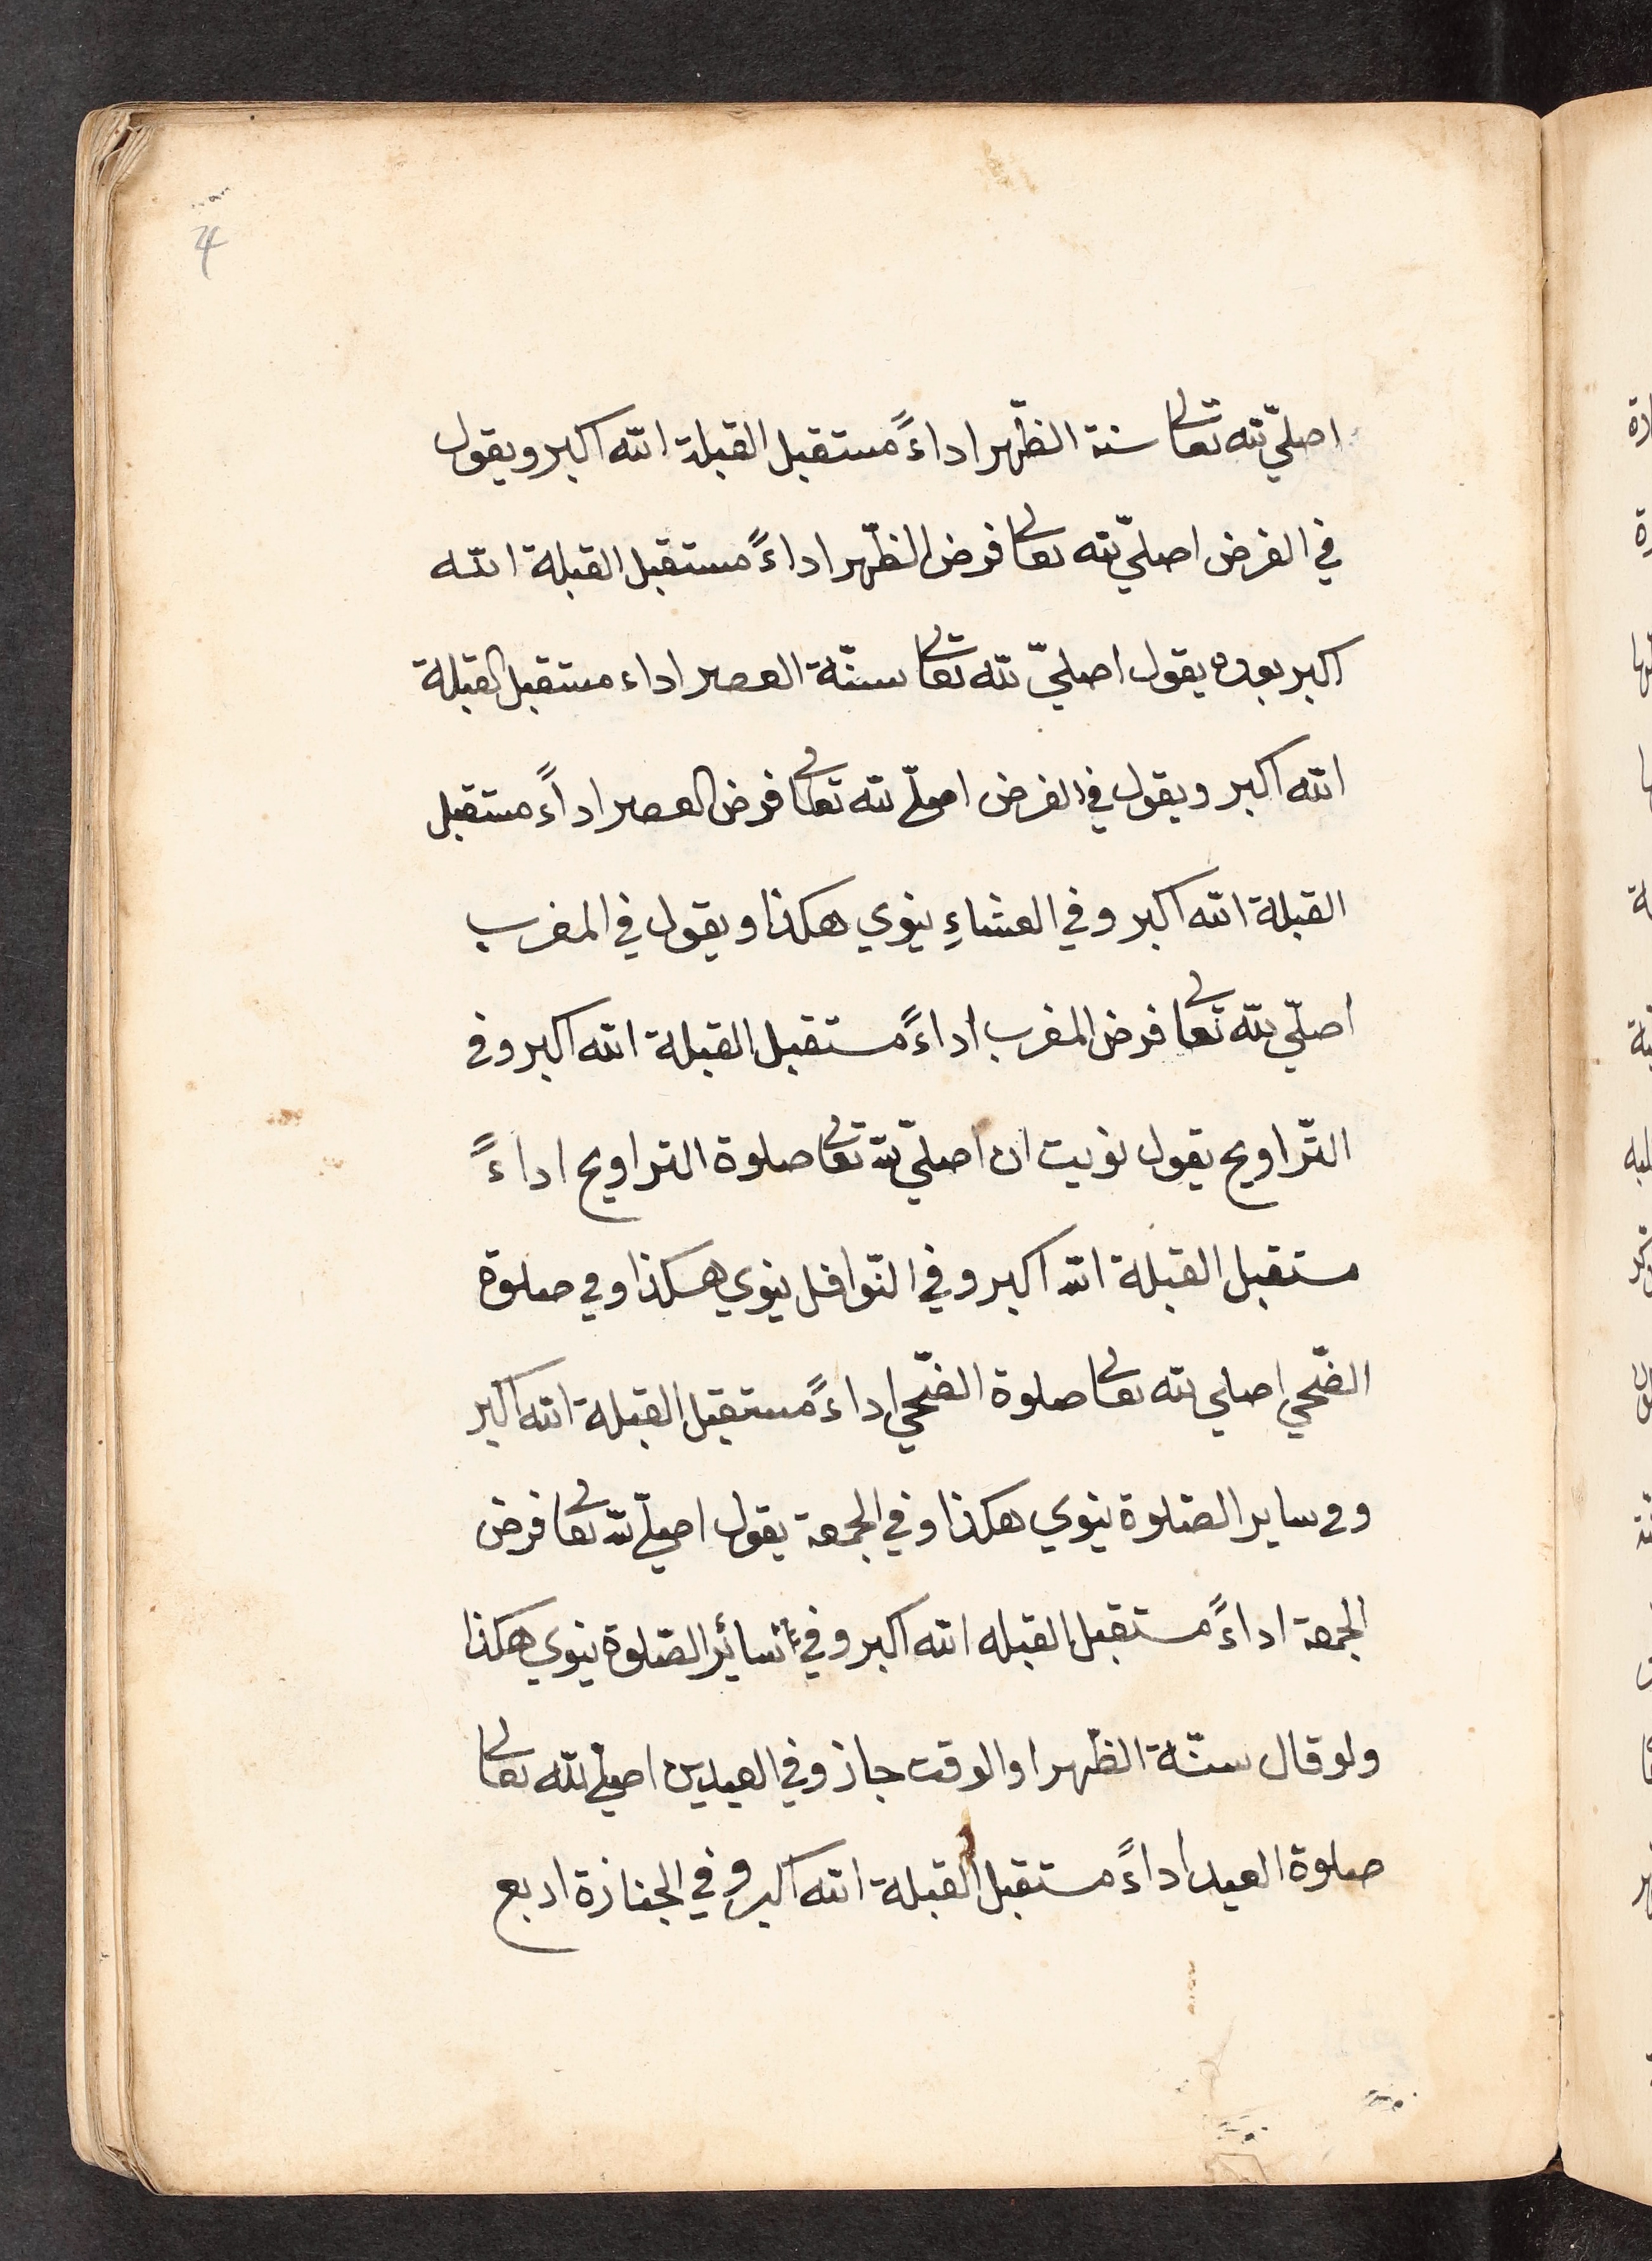 4
اصليّ لله تعالى سنة الظّهر اداءً مستقبل القبلة الله اكبر ويقول
في الفرض اصليّ لله تعالى فرض الظّهر اداءً مستقبل القبلة الله
اكبر بعده يقول اصليّ لله تعالى سنّة العصر اداء مستقبل القبلة
الله اكبر ويقول في الفرض اصليّ لله تعالى فرض العصر اداً مستقبل
القبلة الله اكبر وفي العشاءِ ينوي هكذا ويقول في المغرب
اصليّ لله تعالى فرض المغرب اداءً مستقبل القبلة الله اكبر وفي
التّراويح يقول نويت ان اصليّ لله تعالى صلوة التراويح اداءً
مستقبل القبلة الله اكبر وفي النّوافل ينوي هكذا وفي صلوة
الضّحي اصلي لله تعالى صلوة الضّحي اداءً مستقبل القبلة الله اكبر
وفي ساير الصّلوة ينوي هكذا وفي الجمعة يقول اصليّ لله تعالى فرض
الجمعة اداءً مستقبل القبله الله اكبر وفي سائر الصّلوة ينوي هكذا
ولو قال سنّة الظّهر او الوقت جاز وفي العيدين اصليّ لله تعالى
صلوة العيد اداءً مستقبل القبلة الله اكبر وفي الجنازة اربع